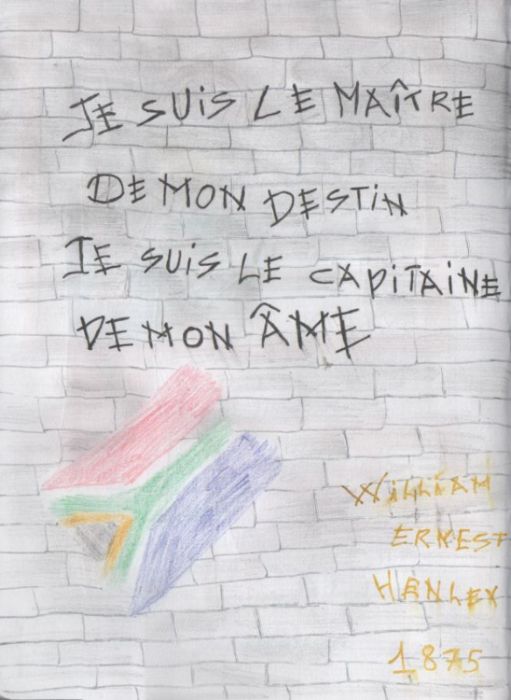 JE SUiS LE MAÎTRE
DE MON DESTiN
JE SUiS LE CAPiTAiNE
DE MON ÂME
WiLLiAM
ERNEST
HENLEY
1875